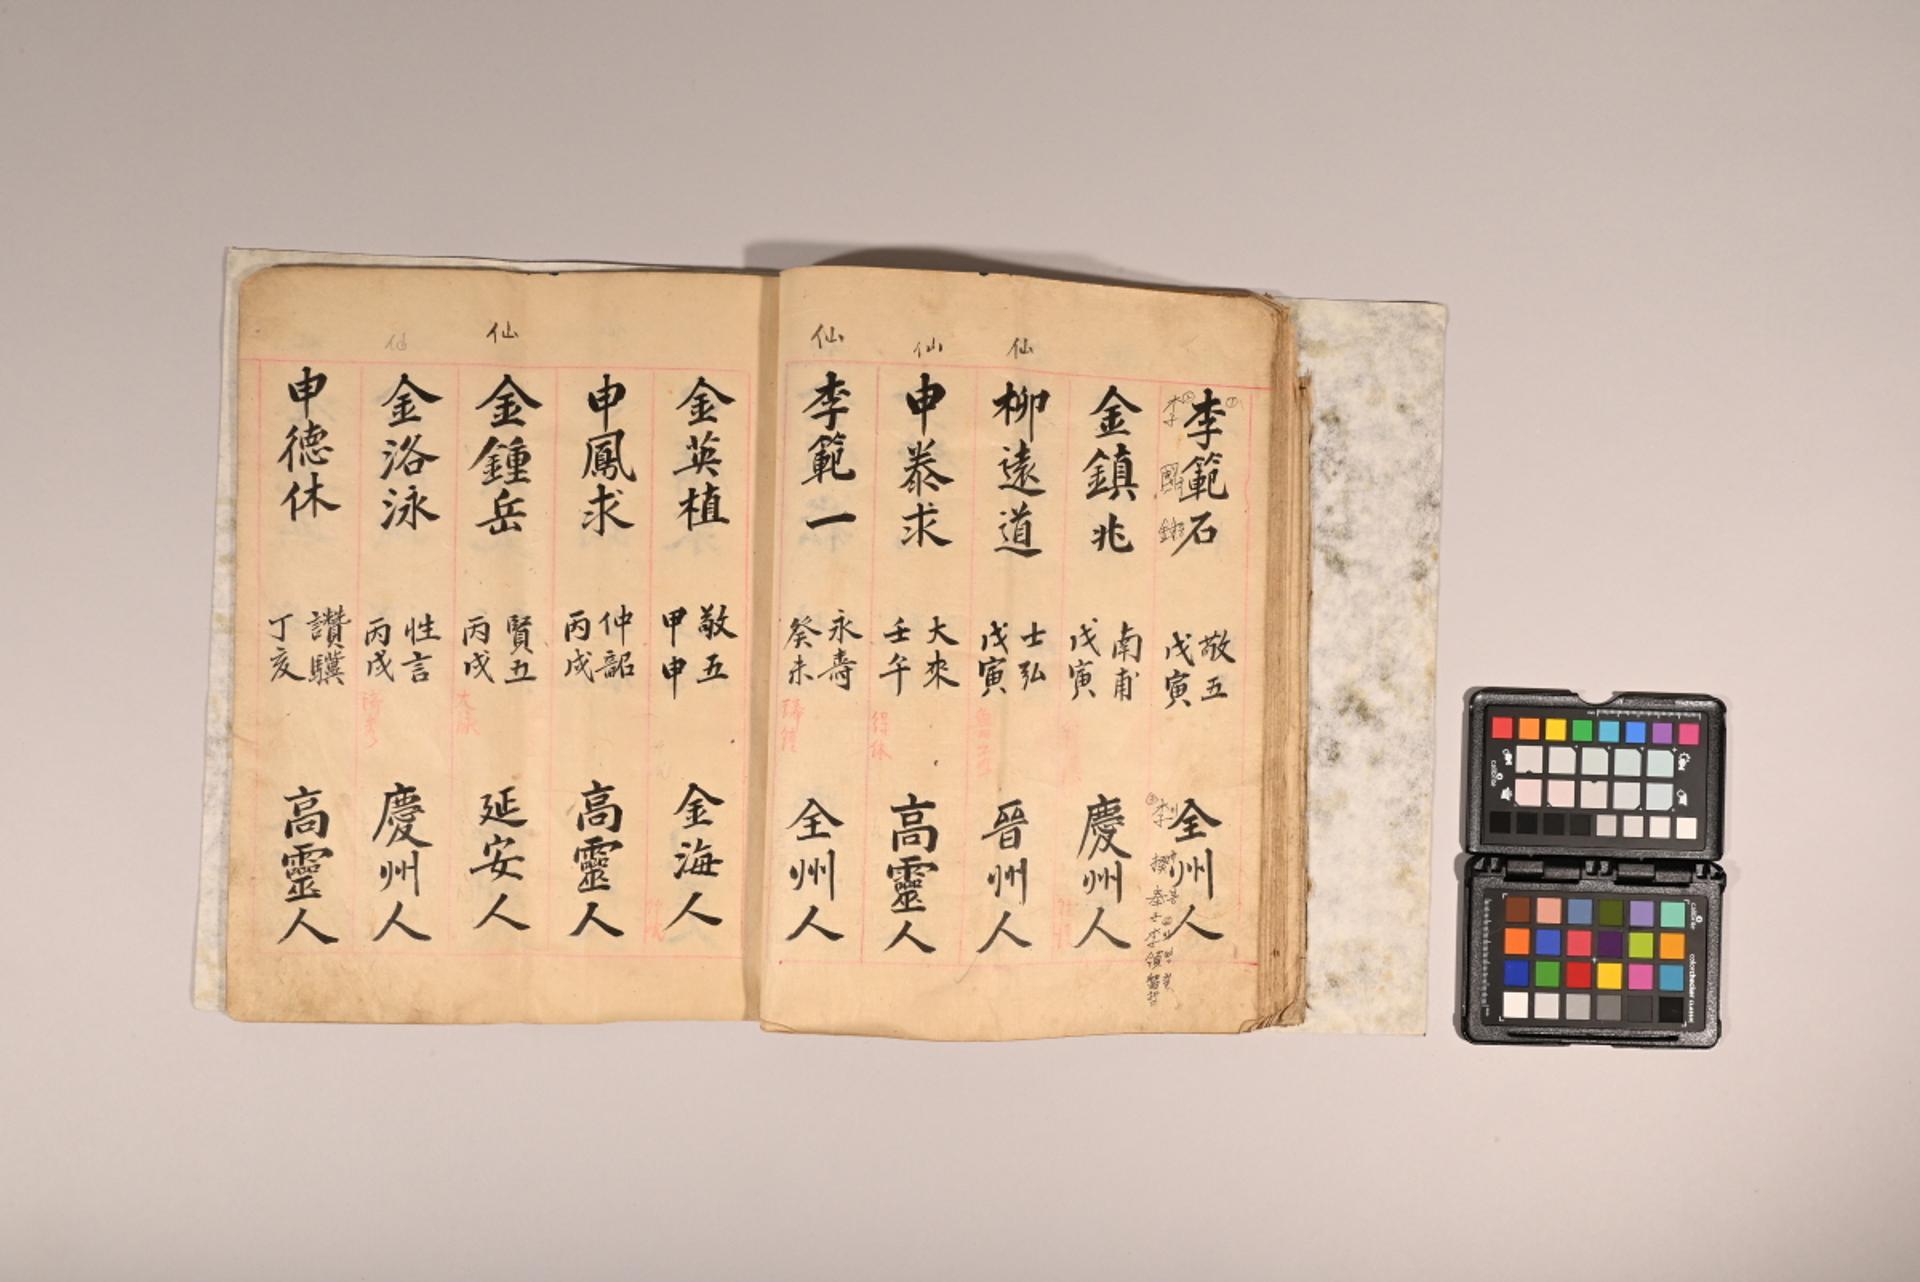 李範石
敬五
戊寅
全州人
李
國
金鎮兆
南甫
戊寅
慶州人
仙
柳遠道
士弘
戊寅
晉州人
仙
申泰求
大來
壬午
得休
高靈人
仙
李範一
永壽
癸未
全州人
金英植
敬五
甲申
金海人
申鳳求
仲韶
丙戌
高靈人
仙
金鍾岳
賢五
丙戌
延安人
仙
金洛泳
性言
丙戌
慶州人
申德休
讚驥
丁亥
高靈人